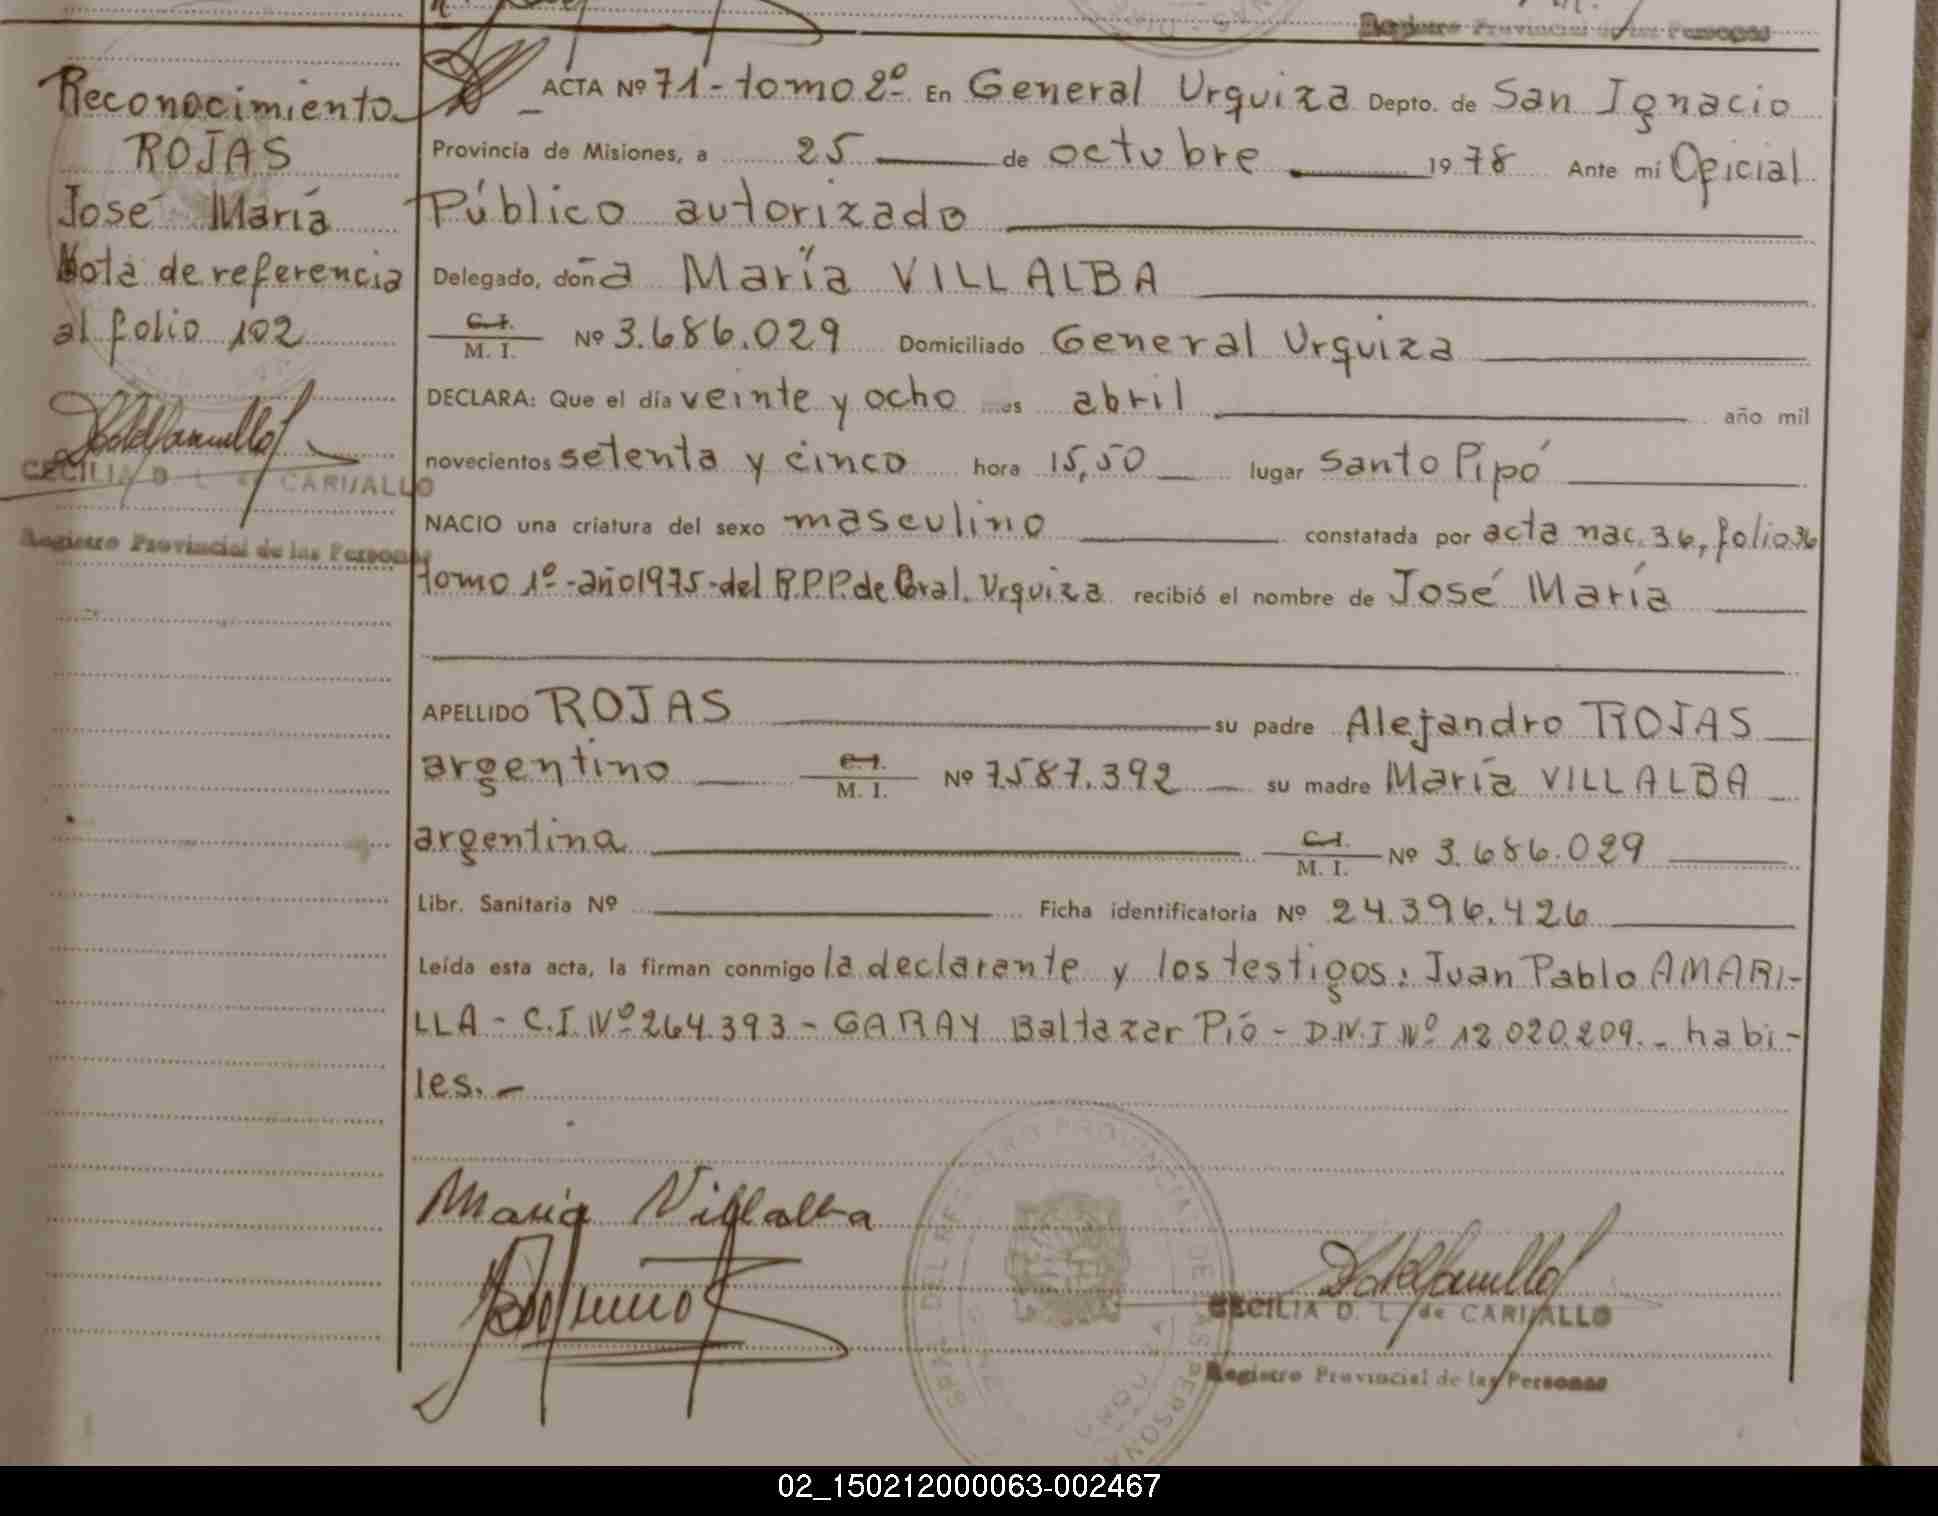 Registro Provincial de las Personas
Reconocimiento
ROJAS
José María
Nota de referencia
al folio 102
CECILIA D. L. de CARVALLO
Registro Provincial de las Personas
ACTA Nº 71 - tomo 2º En General Urquiza Depto. de San Ignacio
Provincia de Misiones, a 25 de octubre 1978 Ante mí Oficial
Público autorizado
Delegado, doña María VILLALBA
C.I. M. I. Nº 3.686.029 Domiciliado General Urquiza
DECLARA: Que el día veinte y ocho mes abril año mil
novecientos setenta y cinco hora 15,50 lugar Santo Pipó
NACIO una criatura del sexo masculino constatada por acta nac. 36, folio 36
tomo 1º - año 1975 - del R.P.P. de Gral. Urquiza recibió el nombre de José María
APELLIDO ROJAS su padre Alejandro ROJAS
argentino C.I. M. I. Nº 7587.392 su madre María VILLALBA
argentina C.I. M. I. Nº 3.686.029
Libr. Sanitaria Nº Ficha identificatoria Nº 24.396.426
Leída esta acta, la firman conmigo la declarante y los testigos: Juan Pablo AMARI-
LLA - C.I. Nº 264.393 - GARAY Baltazar Pío - D.N.I Nº 12.020.209. - habi-
les. -
María Villalba
DEL REGISTRO PROVINCIAL DE LAS PERSONAS
CECILIA D. L. de CARVALLO
Registro Provincial de las Personas
02_150212000063-002467